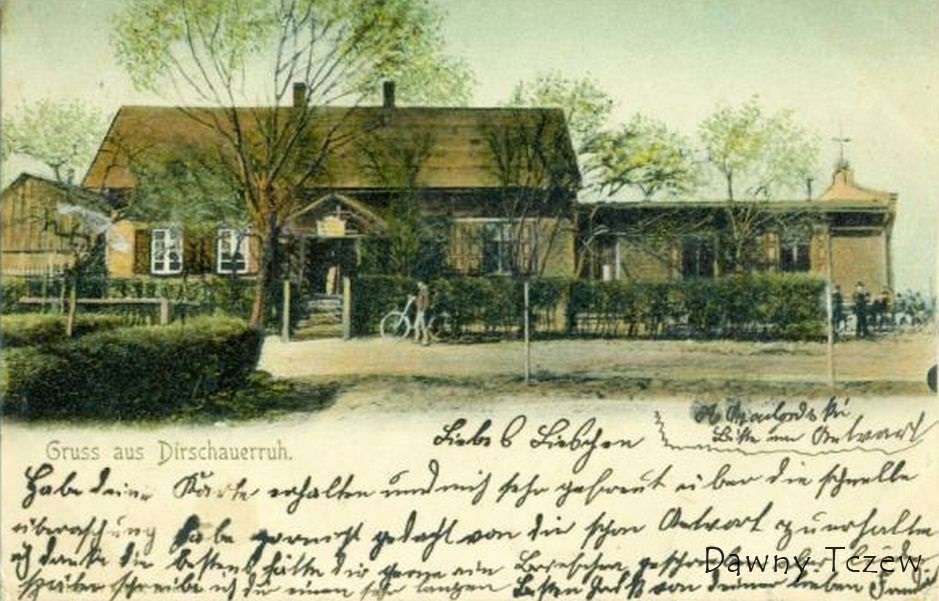 Gruss aus Dirschauerruh.
Liebes Lieschen
Bitte um Antwort
Habe deine Karte erhalten und mich sehr gefreut über die schnelle
überaschung habe garnicht gedacht von dir schon Antwort zu erhalten
ich danke dir bestens hätte dir gerne ein
später schreibe ich dir einen sehr langen Besten Gruß von deiner lieben
Dawny Tczew